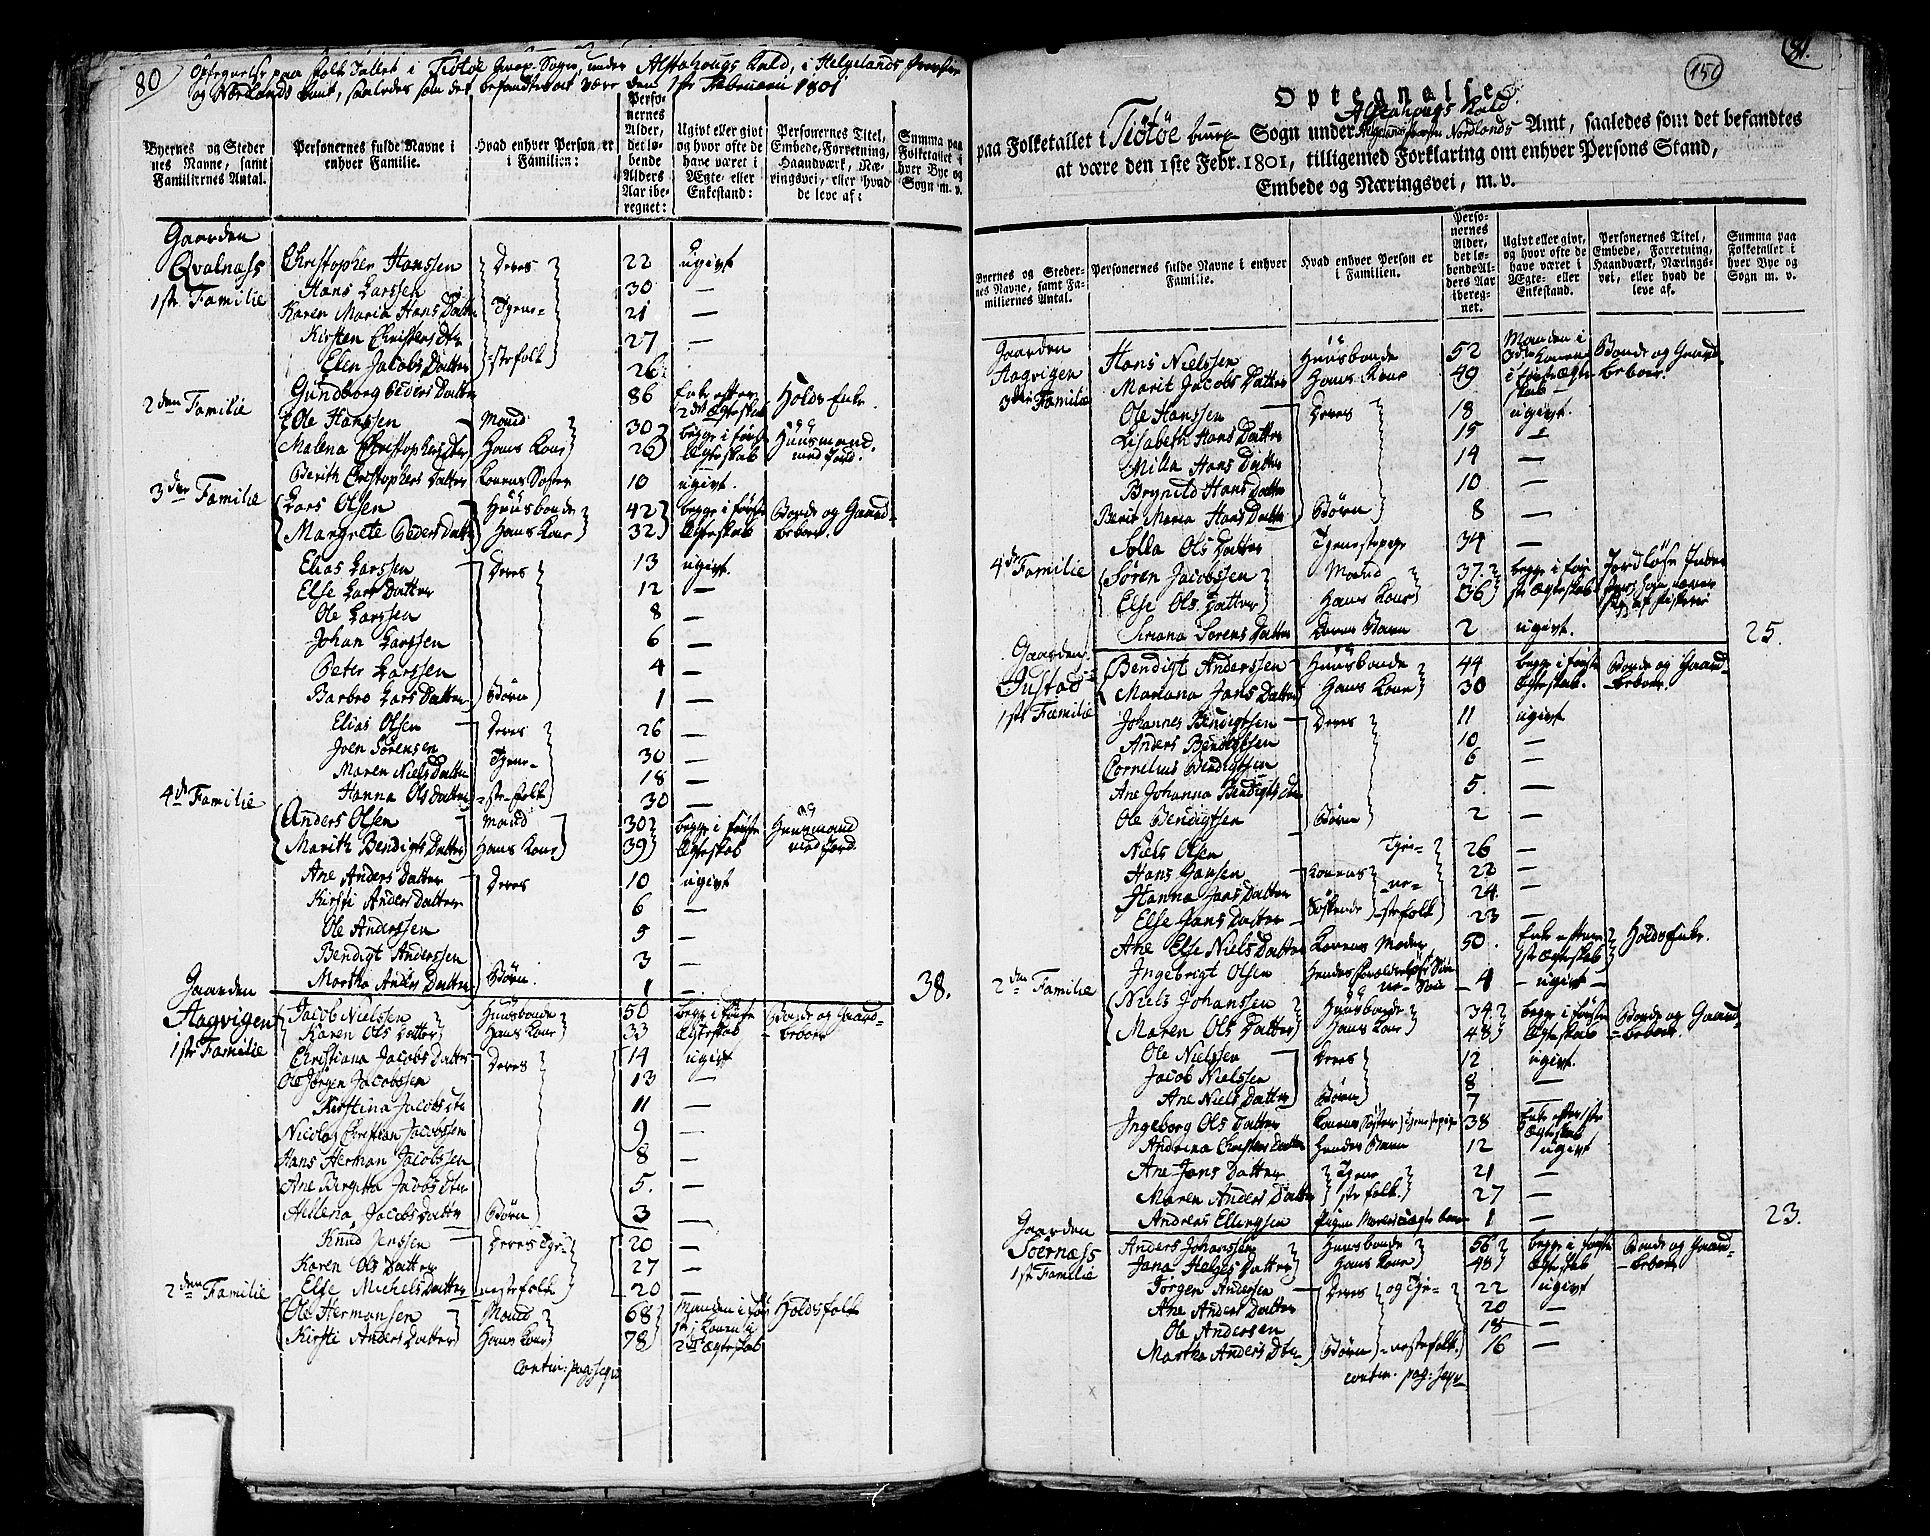 80
Optegnelse paa Folk Tallet i Tiötöe Anex Sogn, under Alstahougs Kald, i Helgelands Provstie
og Nordlands Amt, saaledes som det befandtes at være den 1ste Februarii 1801
Byernes og Steder nes Navne, samt Familiernes Antal. | Personernes fulde Navne i enhver Familie. | Hvad enhver Person er i Familien: | Perso- nernes Alder, det lø- bende Alders Aar ibe- regnet: | Ugivt eller givt og hvor ofte de have været i Ægte- eller Enkestand: | Personernes Titel, Embede, Forretning, Haandværk, Næ- ringsvei, eller hvad de leve af: | Summa paa Folketallet i hver Bye og Sogn m. v.
Gaarden
Qvalnæss Christopher Hanssen Deres 22 ugivt
1ste Familie Hans Larssen 30 —
Karen Maria Hans Datter Tjene- 21 —
Kirsten Christens Dtr 27 —
Elen Jacobs Datter =stefolk 26
Gundborg Peders Datter 86 Enke efter 2det Ægteskab Holds Enke.
2den Familie Ole Hanssen Mand 30 begge i første Huusmand
Malena Christophers Dtr Hans Kone 26 Ægteskab med Jord.
Berith Christophers Datter Konens Søster 10 ugivt.
3die Familie Lars Olsen Huusbonde 42 begge i første Bonde og Gaard
Margrete Peders Datter Hans Kone 32 Ægteskab beboer.
Elias Larssen Deres 13 ugivt.
Else Lars Datter 12 —
Ole Larssen 8 —
Johan Larssen 6 —
Peter Larssen 4 —
Barbro Lars Datter Børn 1 —
Elias Olsen Deres 26 —
Joen Sørensen Tjene- 30 —
Maren Niels Datter 18 —
Hanna Ols Datter =ste-folk 30 —
4de Familie Anders Olsen Mand 30 begge i første Huusmand
Marith Bendigts Datter Hans Kone 39 Ægteskab med Jord.
Ane Anders Datter Deres 10 ugivt
Kirsti Anders Datter 6 —
Ole Anderssen 5 —
Bendigt Anderssen 3 —
Martha Anders Datter Børn. 1 — 38.
Gaarden
Hagvigen Jacob Nielssen Huusbonde 50 begge i første Bonde og Gaard-
1ste Familie Karen Ols Datter Hans Kone 33 Ægteskab =beboer
Christiana Jacobs Datter Deres 14 ugivt
Ole Jørgen Jacobssen 13 —
Kirstina Jacobs Dtr 11 —
Nicolay Christian Jacobssen 9 —
Hans Herman Jacobssen 8 —
Ane Birgitta Jacobs Dtr 5. —
Hellena Jacobs Datter Børn 3 —
Knud Jenssen Deres Tje- 20 —
Karen Ols Datter 27 —
Else Michels Datter nestefolk 20 —
2den Familie Ole Hermansen Mand 68 Manden i før Holdsfolk
Kirsti Anders Datter Hans Kone 78 ste, Konen i 2det Ægteskab
contin: pag: seqv
81.
150
Optegnelse
paa Folketallet i Tiötöe Annex Sogn under Alstahougs Kald Helgelands Provstie Nordlands Amt, saaledes som det befandtes
at være den 1ste Febr. 1801, tilligemed Forklaring om enhver Persons Stand,
Embede og Næringsvei, m. v.
Byernes og Steder- nes Navne, samt Fa- miliernes Antal. | Personernes fulde Navne i enhver Familie. | Hvad enhver Person er i Familien. | Perso- nernes Alder, det lø- bende Al- ders Aar ibereg- net: | Ugivt eller givt, og hvor ofte de have været i Ægte- eller Enkestand. | Personernes Titel, Embede, Forretning, Haandværk, Nærings- vei, eller hvad de leve af. | Summa paa Folketallet i hver Bye og Sogn m. v.
Gaarden Manden i
Hagvigen Hans Nielssen Huusbonde 52 2det Konen Bonde og Gaard
3die Familie Marit Jacobs Datter Hans Kone 49 i første Ægte skab beboer.
Ole Hanssen Deres 18 ugivt.
Lisabeth Hans Datter 15 —
Milla Hans Datter 14 —
Brynild Hans Datter 10 —
Berit Maria Hans Datter Børn 8 —
Solla Ols Datter Tjenestepige 34 —
4de Familie Søren Jacobssen Mand 37 begge i før Jordløse Inder
Else Ols Datter Hans Kone 36 ste Ægteskab ster, som nærer sig af fiskerie
Siriana Sørens Datter Deres Barn 2 ugivt. 25.
Gaarden
Justad Bendigt Anderssen Huusbonde 44 begge i første Bonde og Gaard-
1ste Familie Mariana Jans Datter Hans Kone 30 Ægteskab. =beboer.
Johannes Bendigtsen Deres 11 ugivt
Anders Bendigtsen 10 —
Cornelius Bendigtsen 6 —
Ane Johanna Bendigts Dtr 5. —
Ole Bendigtsen Børn 2 —
Niels Olsen Tje- 26 —
Hans Jansen Konens =ne- 22 —
Hanna Jans Datter 24 —
Else Jans Datter Søskende =stefolk 23 —
Ane Else Niels Datter Konens Moder 50. Enke efter 1ste Ægteskab Holds Enke.
Ingebrigt Olsen 4 — ugivt —
2den Familie Niels Johanssen Huusbonde 34 begge i første Bonde og Gaard-
Maren Ols Datter Hans Kone 48 Ægteskab =beboer.
Ole Nielssen Deres 12 ugivt.
Jacob Nielssen 8 —
Ane Niels Datter Børn 7 —
Ingeborg Ols Datter Konens Søster Tjenestepige 38 Enke efter 1ste Ægteskab
Andrina Christens Datter Hendes Barn 12 ugivt
Ane Jans Datter Tjene 21 —
Maren Anders Datter ste folk. 27 —
Andreas Ellingsen Pigen Marens uægte barn 1 — 23.
Gaarden
Soernæss Anders Johanssen Huusbonde 56 begge i første Bonde og Gaard-
1ste Familie Jana Helges Datter Hans Kone 48 Ægteskab =beboer
Jørgen Andersen Deres og Tje- 22 ugivt
Ane Anders Datter 20 —
Ole Andersen 18 —
Martha Anders Dtr Børn =nestefolk. 16 —
contin. pag: seqv